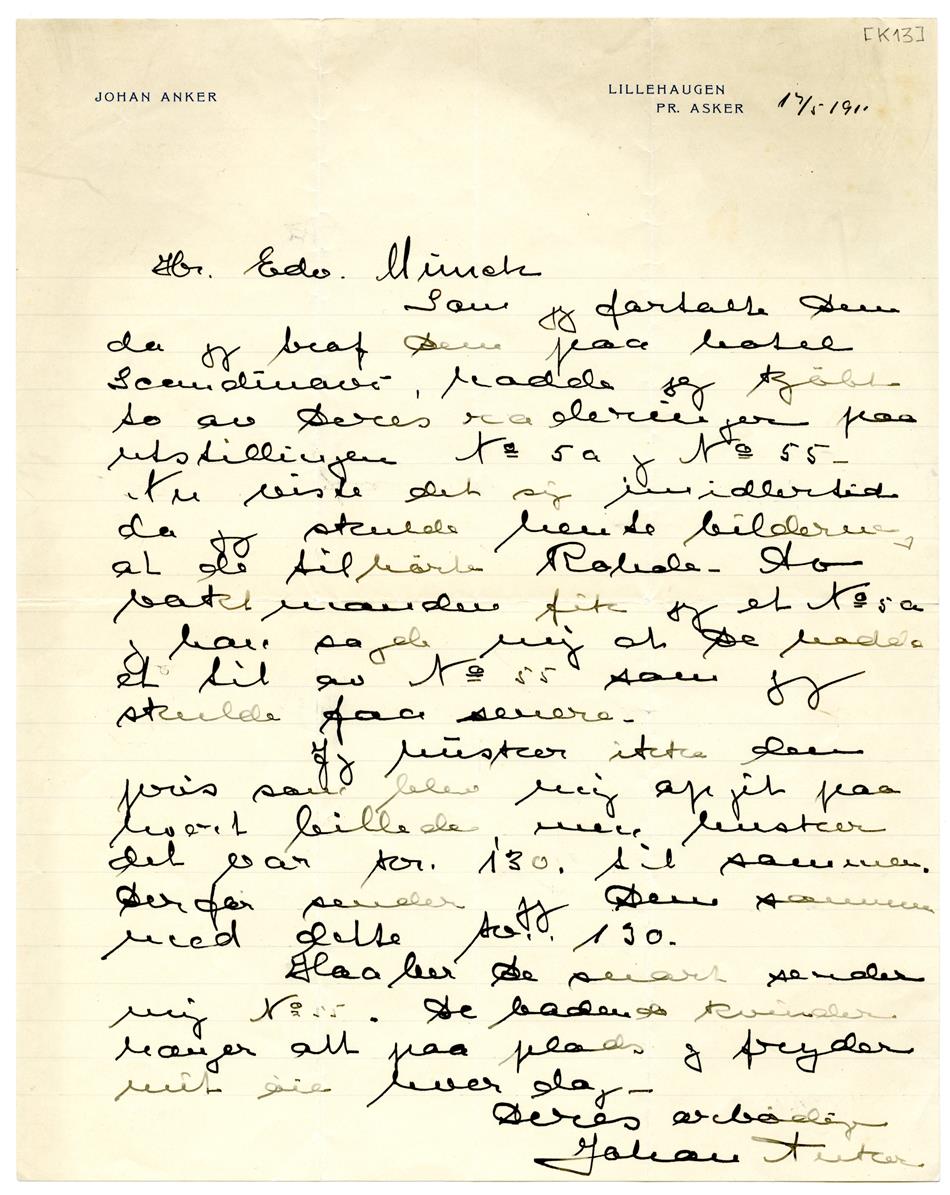 [K13]
JOHAN ANKER
LILLEHAUGEN
PR. ASKER 17/5 1911
Hr. Edv. Munch
Som jeg fortalte Dem
da jeg traf Dem paa hotel
Scandinavi, hadde jeg kjøbt
to av Deres raderinger paa
utstillingen Nº 5a og Nº 55 –
Nu viste det sig imidlertid
da jeg skulde hente bilderne,
at de tilhørte Rohde – Av
vaktmanden fik jeg et Nº 5a
og han sagde mig at De hadde
et til av Nº 55 som jeg
skulde faa senere –
Jeg husker ikke den
pris som blev mig opgit paa
hvert billede, men husker
det var kr. 130. til sammen.
Derfor sender jeg Dem sammen
med dette kr. 130.
Haaber De snart sender
mig Nº 55. De badende kvinder
hænger alt paa plads og fryder
mit øie hver dag –
Deres ærbødige
Johan Anker